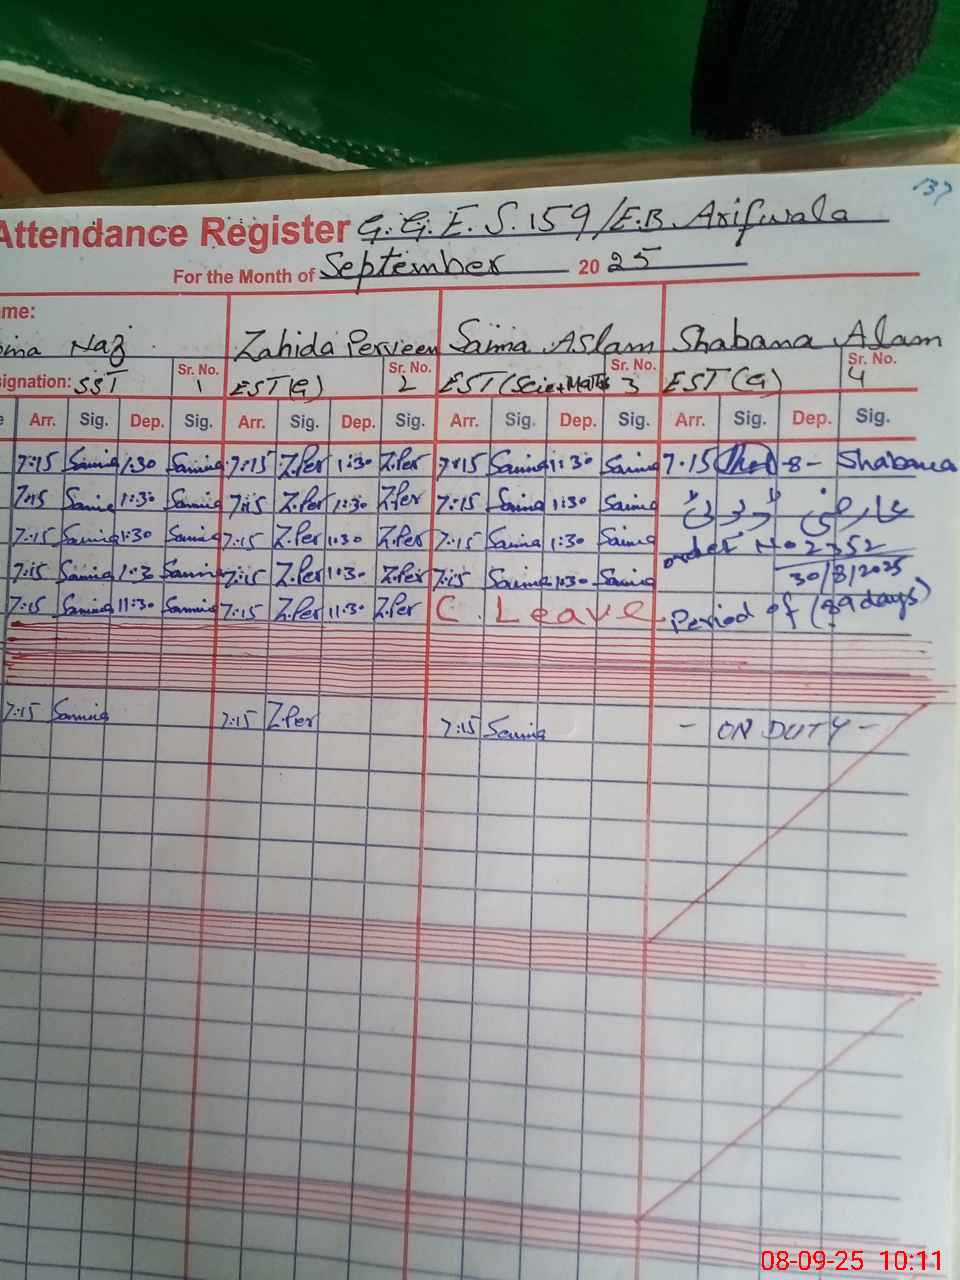 137
Attendance Register G.G.E.S. 159/E.B. Arifwala
For the Month of September 2025
me: Naz Zahida Perveen Saima Aslam Shabana Aslam
signation: SST Sr. No. 1 EST(G) Sr. No. 2 EST(Scie+Maths Sr. No. 3 EST(G) Sr. No. 4
Arr. Sig. Dep. Sig. Arr. Sig. Dep. Sig. Arr. Sig. Dep. Sig. Arr. Sig. Dep. Sig.
7:15 1:30 7:15 Z.Per 1:30 Z.Per 7:15 Saima 1:30 Saima 7.15 -8- Shabana
7:15 1:30 7:15 Z.Per 1:30 Z.Per 7:15 Saima 1:30 Saima عارضی ڈیوٹی
7:15 1:30 7:15 Z.Per 1:30 Z.Per 7:15 Saima 1:30 Saima order No 2352
7:15 1:30 7:15 Z.Per 1:30 Z.Per 7:15 Saima 1:30 Saima 30/8/2025
7:15 11:30 7:15 Z.Per 11:30 Z.Per C. Leave Period of (89 days)
7:15 7:15 Z.Per 7:15 Saima - ON DUTY -
08-09-25 10:11